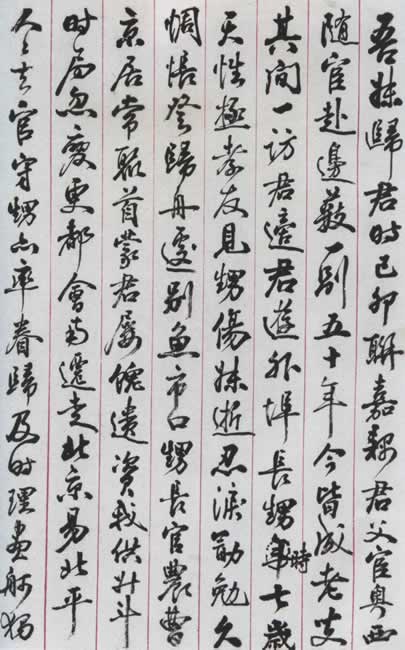 吾妹歸君時己卯聯嘉耦君父官粵西
隨宦赴邊藪一別五十年今皆成老叟
其間一訪君適君遊外埠長甥時七歲
天性極孝友見甥傷妹逝忍淚勖勉久
惆悵登歸舟遽別魚市口甥長官農曹
京居常聚首蒙君屢饋遺資我供升斗
時局忽變更都會南遷走北京易北平
人人去官守甥亦率眷歸及時理畫舫獨